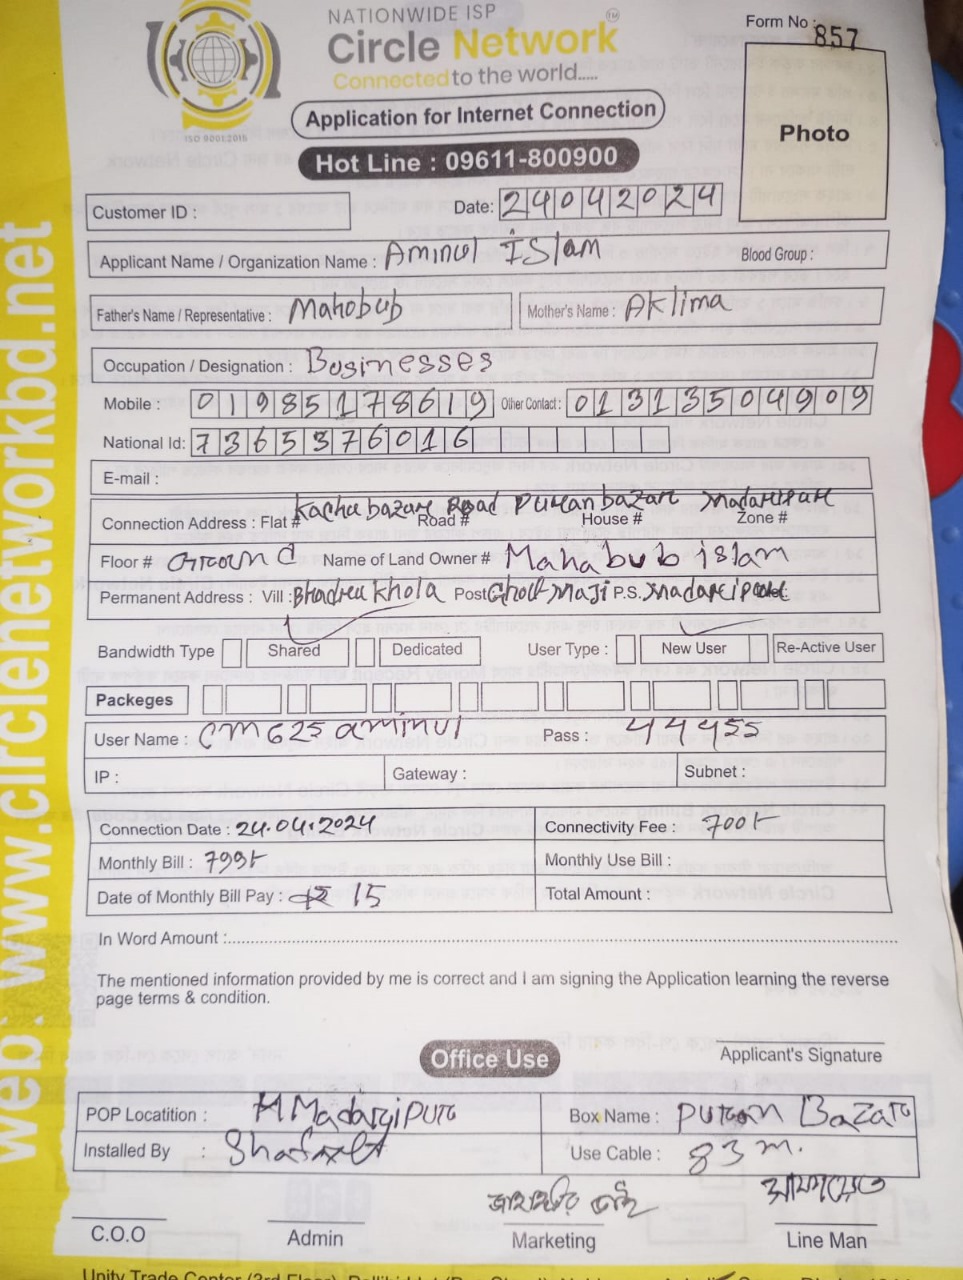 NATIONWIDE ISP
Circle Network TM
Connected to the world.....
ISO 9001:2015
Form No : 857
Application for Internet Connection
Photo
Hot Line : 09611-800900
Customer ID :
Date: 24042024
Applicant Name / Organization Name : Aminul ISlam
Blood Group :
Father's Name / Representative : Mahobub Mother's Name : AKlima
Occupation / Designation : Businesses
Mobile : 01985178619 Other Contact : 01313504909
National Id: 7365376016
E-mail :
Kacha bazare Road Puran bazare Madaripure
Connection Address : Flat # Road # House # Zone #
Floor # Ground Name of Land Owner # Mahabub islam
Permanent Address : Vill : Bhadra Khola Post Ghot Maji P.S. Madaripure
Bandwidth Type Shared Dedicated User Type : New User Re-Active User
Packeges
User Name : CM625aminul Pass : 44455
IP : Gateway : Subnet :
Connection Date : 24.04.2024 Connectivity Fee : 700/-
Monthly Bill : 799/- Monthly Use Bill :
Date of Monthly Bill Pay : 15 Total Amount :
In Word Amount :
The mentioned information provided by me is correct and I am signing the Application learning the reverse
page terms & condition.
Office Use
Applicant's Signature
POP Locatition : Madaripure Box Name : Puran Bazare
Installed By : Use Cable : 83 m.
C.O.O Admin Marketing Line Man
web: www.circlenetworkbd.net